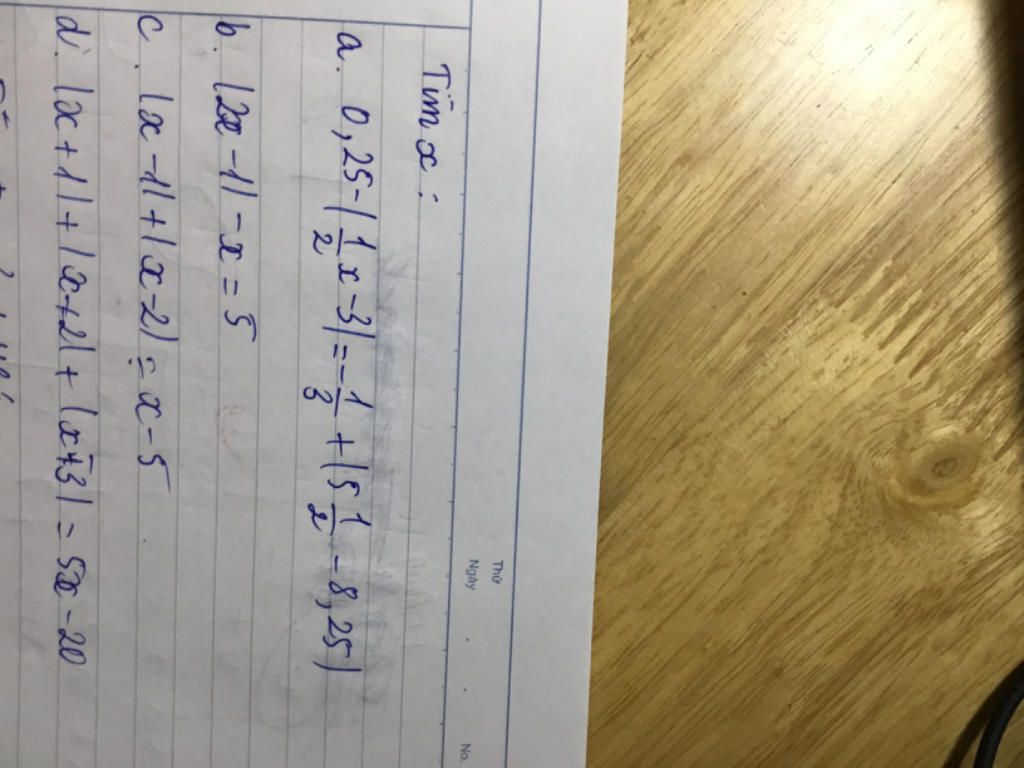 Thứ
Ngày
No.
Tìm x :
a. 0,25 - |1/2 x - 3| = -1/3 + |5 1/2 - 8,25|
b. |2x - 1| - x = 5
c. |x - 1| + |x - 2| = x - 5
d. |x + 1| + |x + 2| + |x + 3| = 5x - 20